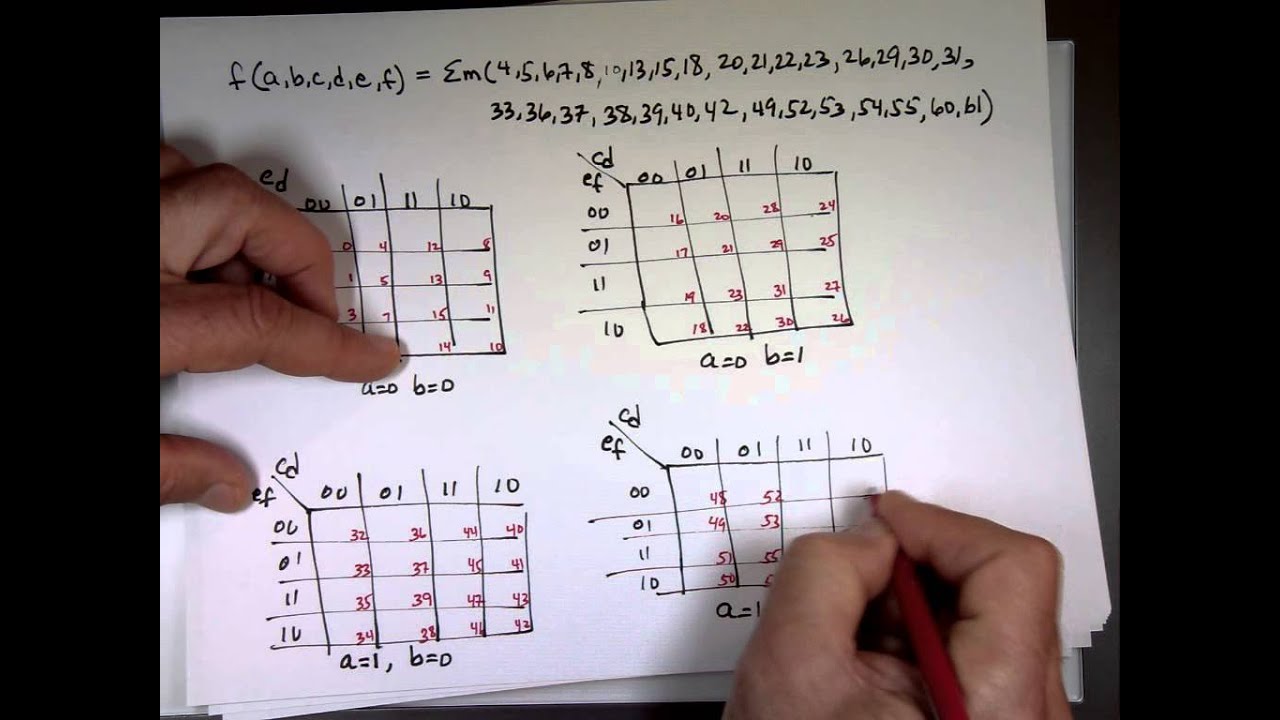 f(a,b,c,d,e,f) = Σm(4,5,6,7,8,10,13,15,18, 20,21,22,23,26,29,30,31,
33,36,37,38,39,40,42,49,52,53,54,55,60,61)
cd
00 01 11 10
0 4 12 8
1 5 13 9
3 7 15 11
14 10
a=0 b=0
cd
ef 00 01 11 10
00 16 20 28 24
01 17 21 29 25
11 19 23 31 27
10 18 22 30 26
a=0 b=1
cd
ef 00 01 11 10
00 32 36 44 40
01 33 37 45 41
11 35 39 47 43
10 34 38 46 42
a=1, b=0
cd
ef 00 01 11 10
00 48 52
01 49 53
11 51 55
10 50
a=1